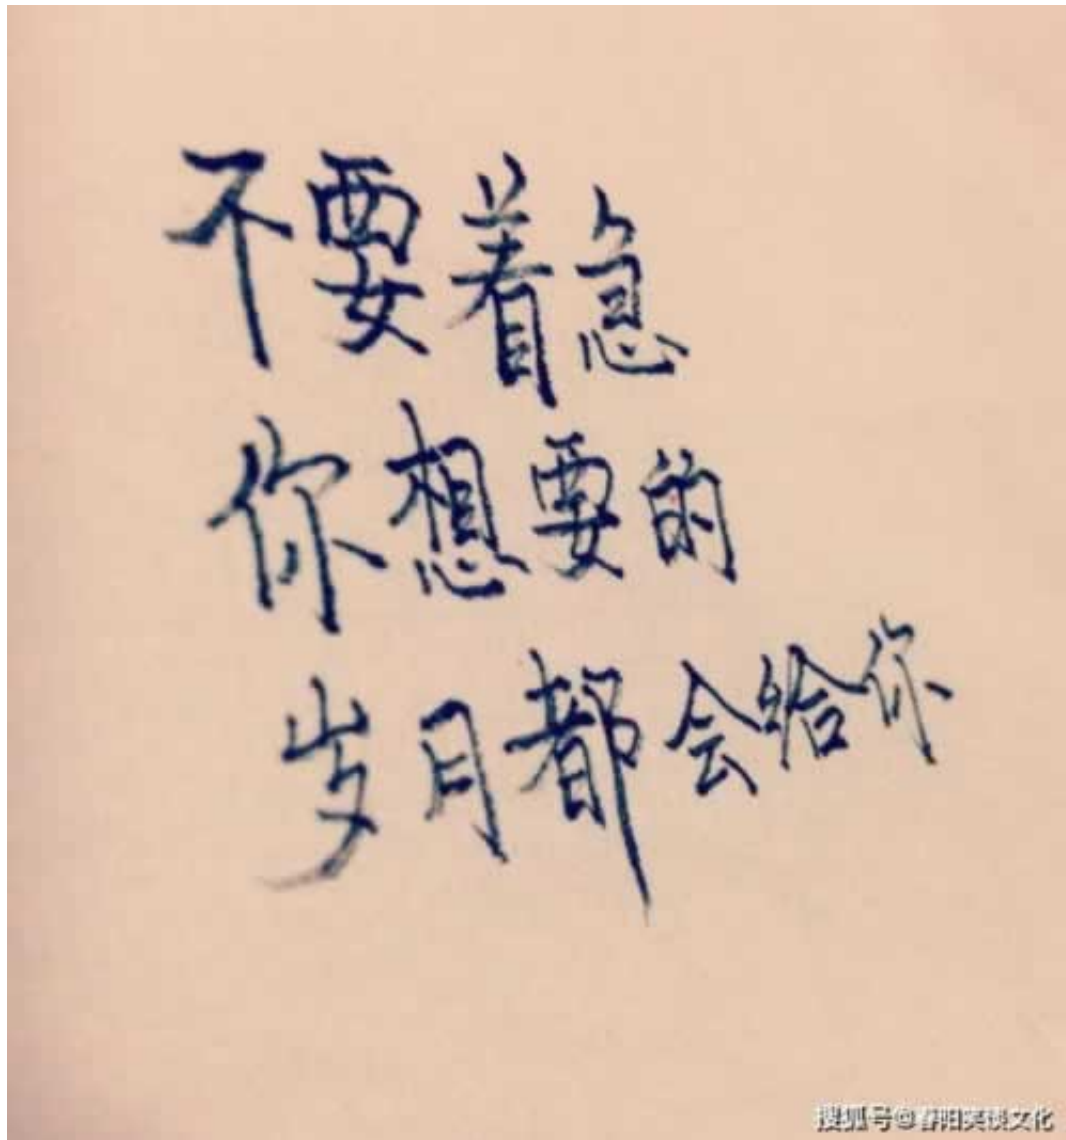 不要着急
你想要的
岁月都会给你
搜狐号@春阳笑谈文化